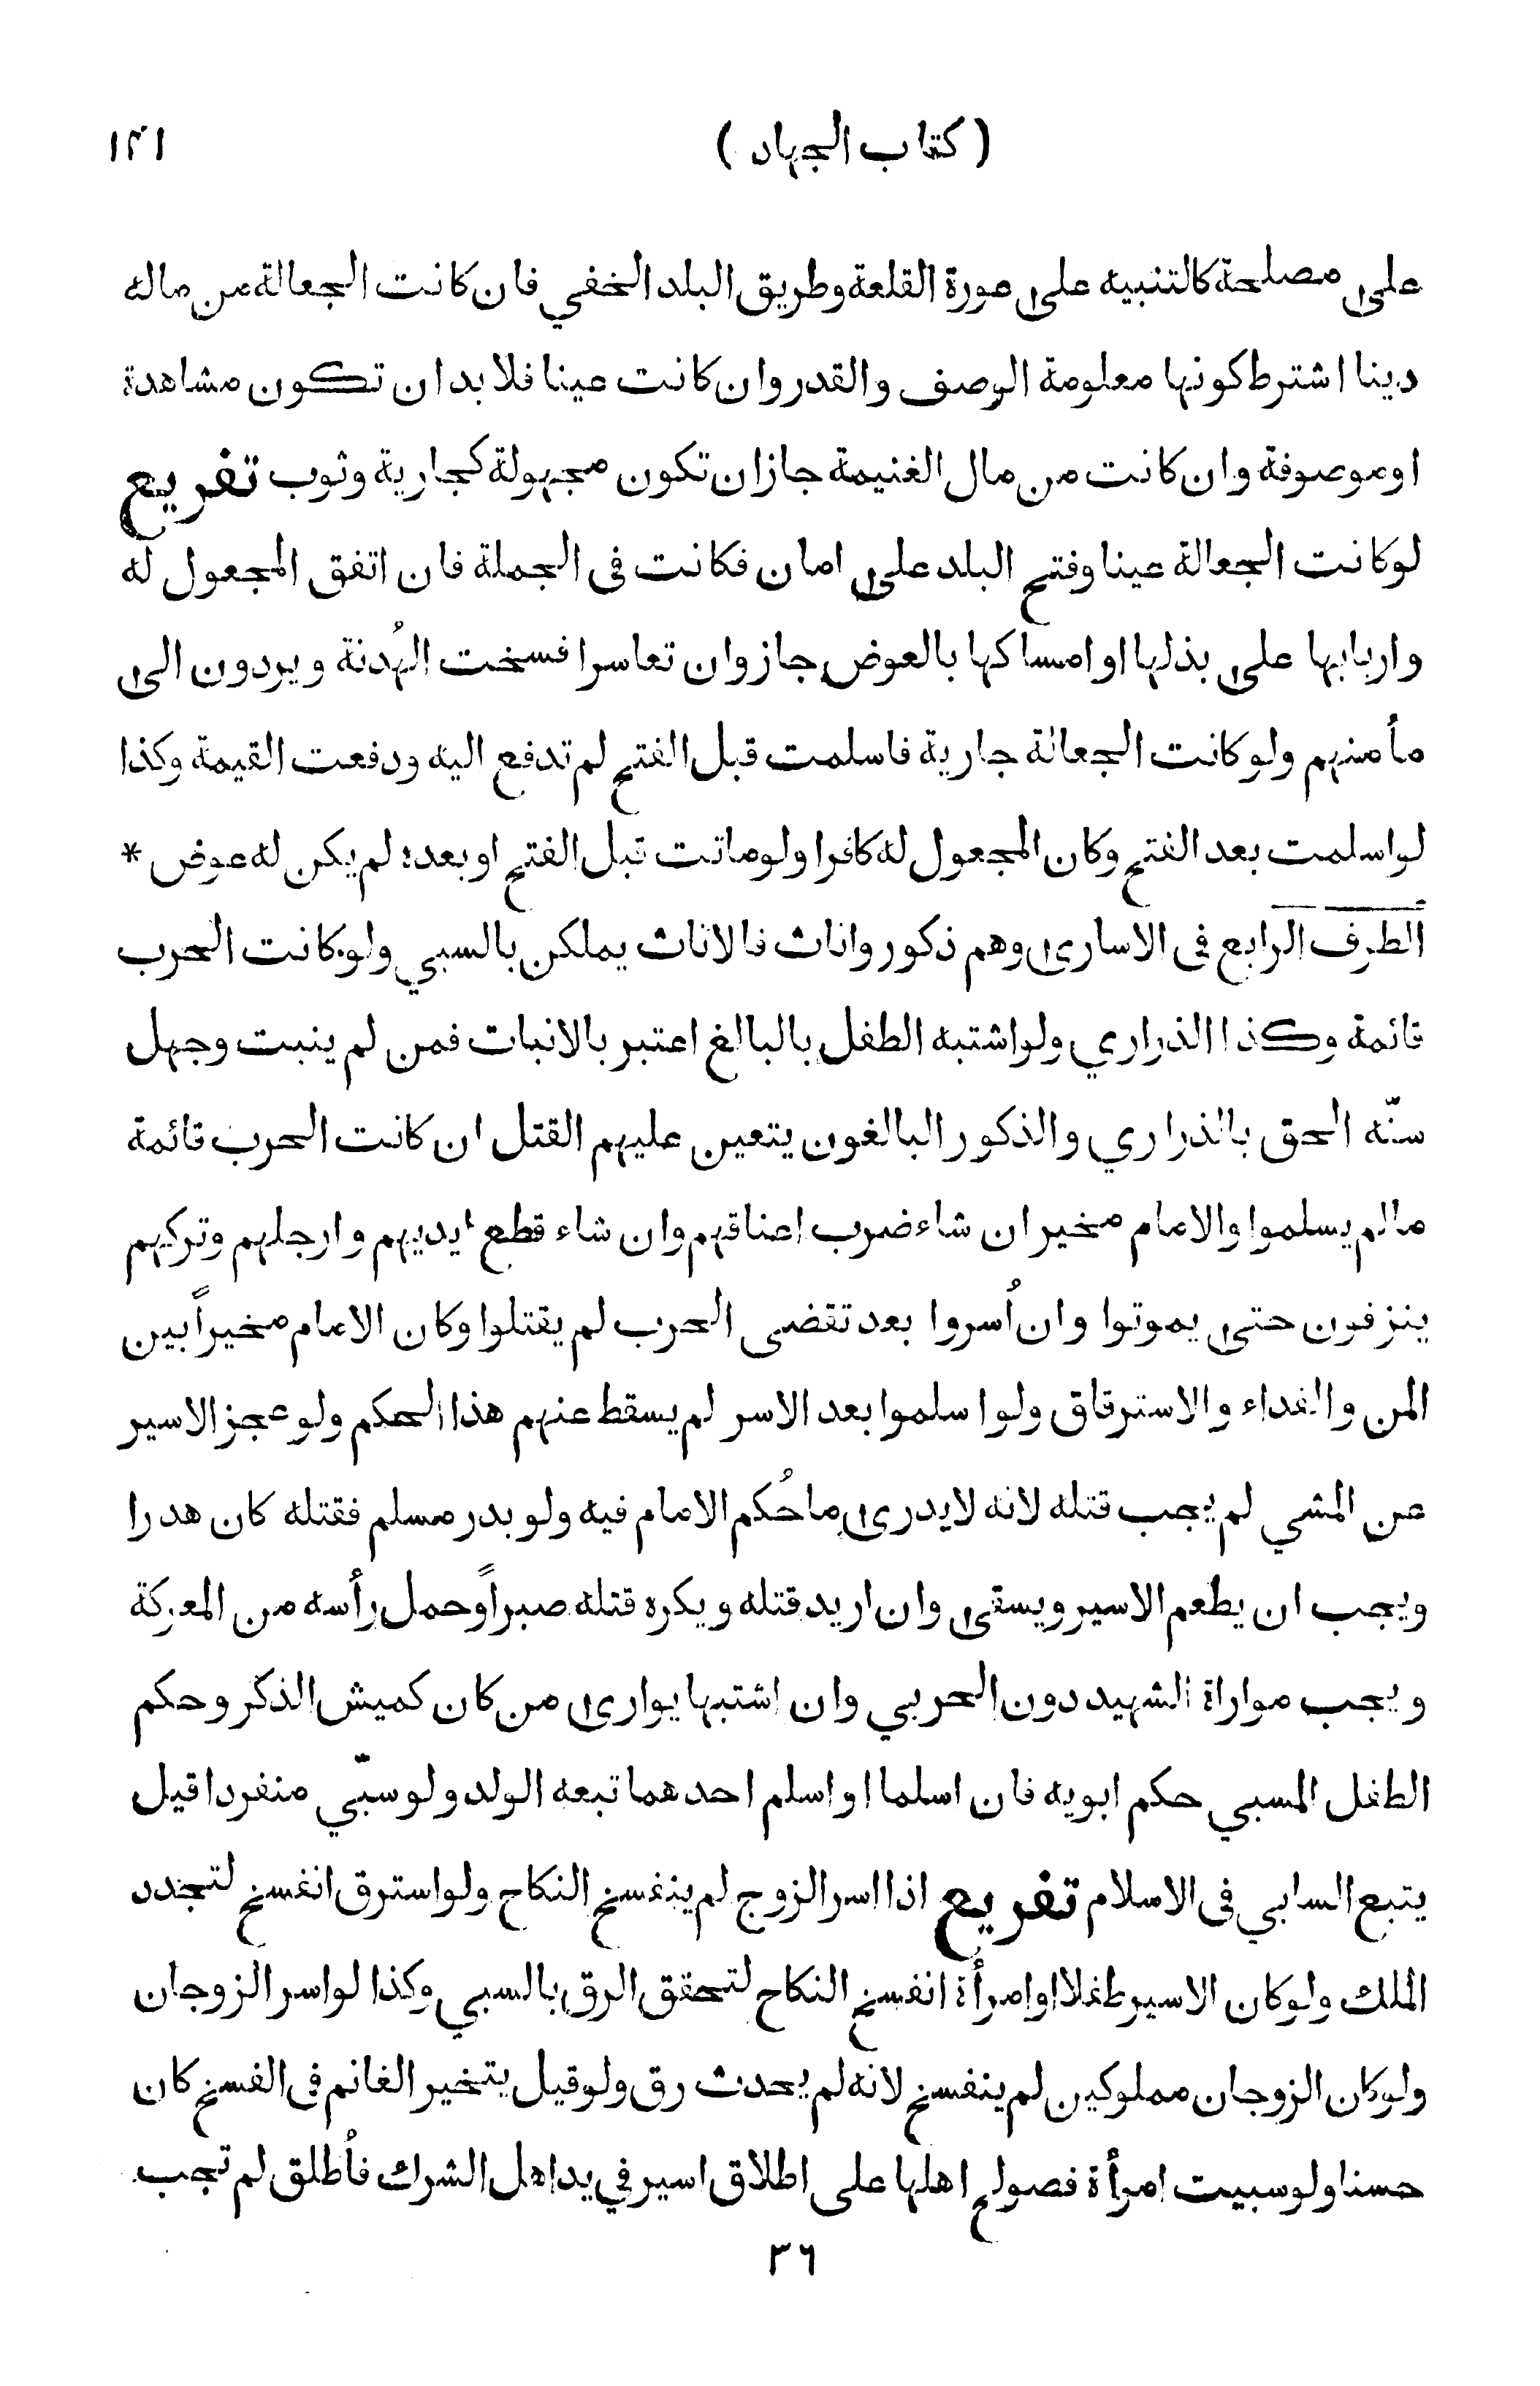 ( كتاب الجهاد ) ١٤١
على مصلحة كالتنبيه على عورة القلعة وطريق البلد الخفي فان كانت الجعالة من ماله
دينا اشترط كونها معلومة الوصف والقدر وان كانت عينا فلا بد ان تكون مشاهدة
او موصوفة وان كانت من مال الغنيمة جاز ان تكون مجهولة كجارية وثوب تفريع
لو كانت الجعالة عينا وفتح البلد على امان فكانت فى الجملة فان اتفق المجعول له
واربابها على بذلها او امساكها بالعوض جاز وان تعاسرا فسخت الهُدنة ويردون الى
مأمنهم ولو كانت الجعالة جارية فاسلمت قبل الفتح لم تدفع اليه ودفعت القيمة وكذا
لو اسلمت بعد الفتح وكان المجعول له كافرا ولو ماتت قبل الفتح او بعده لم يكن له عوض *
الطرف الرابع فى الاسارى وهم ذكور واناث فالاناث يملكن بالسبي ولو كانت الحرب
قائمة وكذا الذراري ولو اشتبه الطفل بالبالغ اعتبر بالانبات فمن لم ينبت وجهل
سنّه الحق بالذراري والذكور البالغون يتعين عليهم القتل ان كانت الحرب قائمة
ما لم يسلموا والامام مخير ان شاء ضرب اعناقهم وان شاء قطع ايديهم وارجلهم وتركهم
ينزفون حتى يموتوا وان اُسروا بعد تقضى الحرب لم يقتلوا وكان الامام مخيراً بين
المن والفداء والاسترقاق ولو اسلموا بعد الاسر لم يسقط عنهم هذا الحكم ولو عجز الاسير
عن المشي لم يجب قتله لانه لا يدرى ما حُكم الامام فيه ولو بدر مسلم فقتله كان هدرا
ويجب ان يطعم الاسير ويسقى وان اريد قتله ويكره قتله صبراً وحمل رأسه من المعركة
ويجب مواراة الشهيد دون الحربي وان اشتبها يوارى من كان كميش الذكر وحكم
الطفل المسبي حكم ابويه فان اسلما او اسلم احدهما تبعه الولد ولو سبّي منفردا قيل
يتبع السابي فى الاسلام تفريع اذا اسر الزوج لم ينفسخ النكاح ولو استرق انفسخ لتجدد
الملك ولو كان الاسير طفلا او امرأة انفسخ النكاح لتحقق الرق بالسبي وكذا لو اسر الزوجان
ولو كان الزوجان مملوكين لم ينفسخ لانه لم يحدث رق ولو قيل يتخير الغانم فى الفسخ كان
حسنا ولو سبيت امرأة فصولح اهلها على اطلاق اسير في يد اهل الشرك فأُطلق لم تجب
٣٦